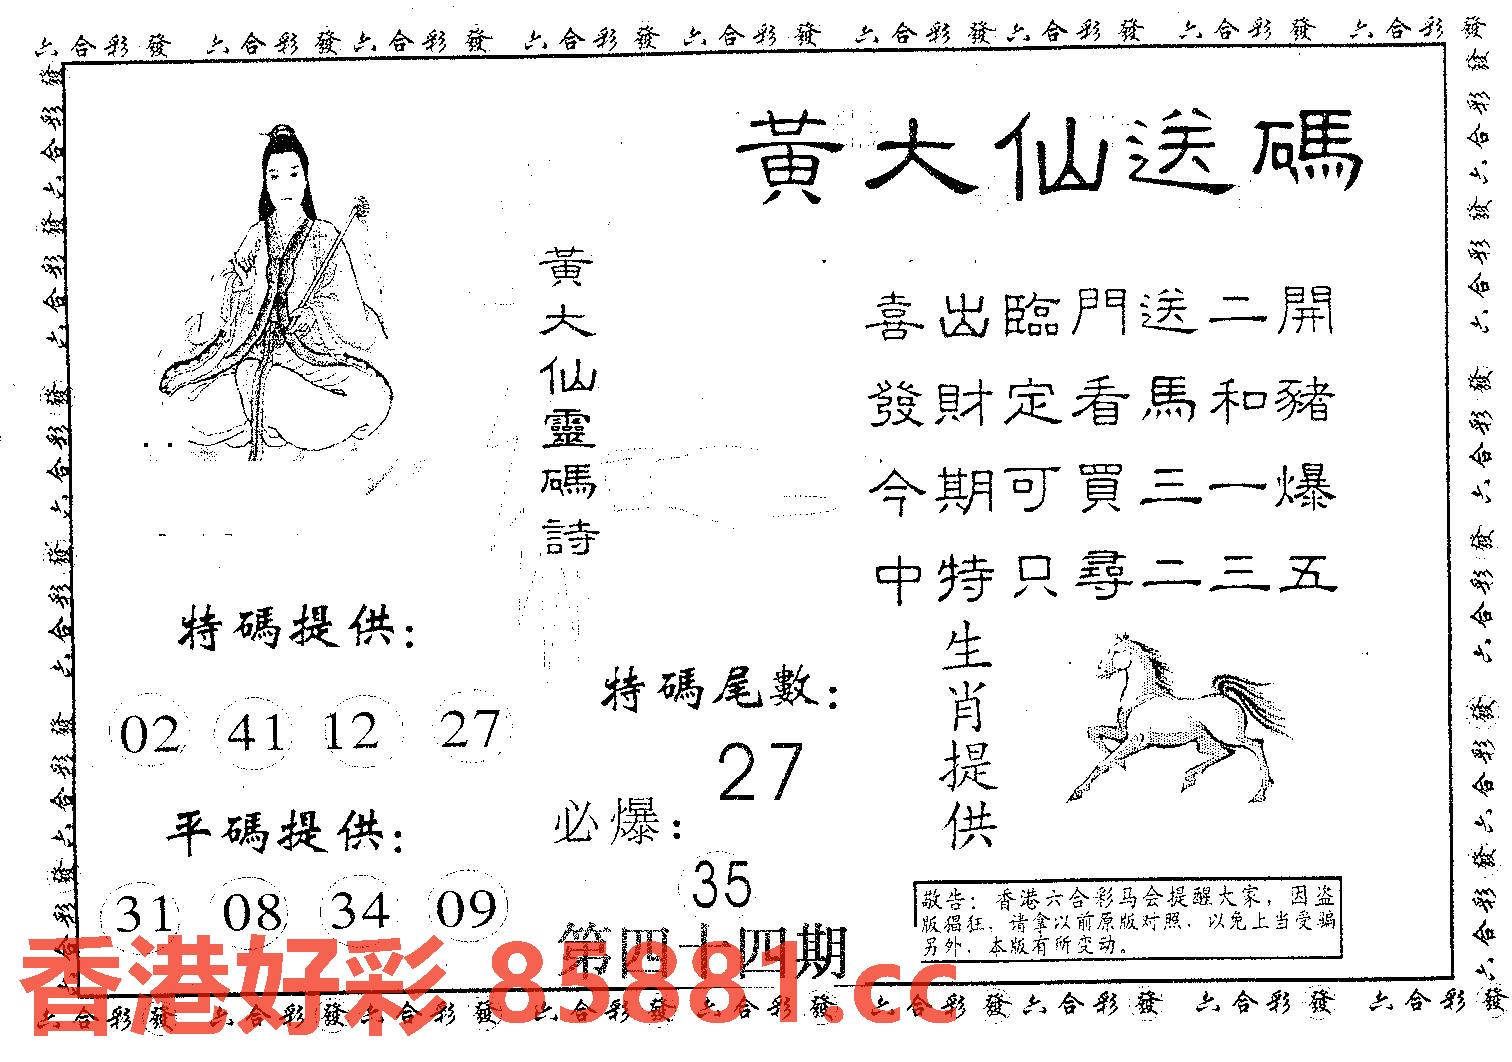 六合彩發 六合彩發 六合彩發 六合彩發 六合彩發 六合彩發 六合彩發 六合彩發 六合彩發
黃大仙送碼
黃大仙靈碼詩
喜出臨門送二開
發財定看馬和豬
今期可買三一爆
中特只尋二三五
特碼提供：
02 41 12 27
平碼提供：
31 08 34 09
特碼尾數：
27
必爆：
35
第四十四期
生肖提供
敬告：香港六合彩马会提醒大家，因盗
版猖狂，请拿以前原版对照，以免上当受骗
另外，本版有所变动。
香港好彩 85881.cc
六合彩發 六合彩發 六合彩發 六合彩發 六合彩發 六合彩發 六合彩發 六合彩發 六合彩發